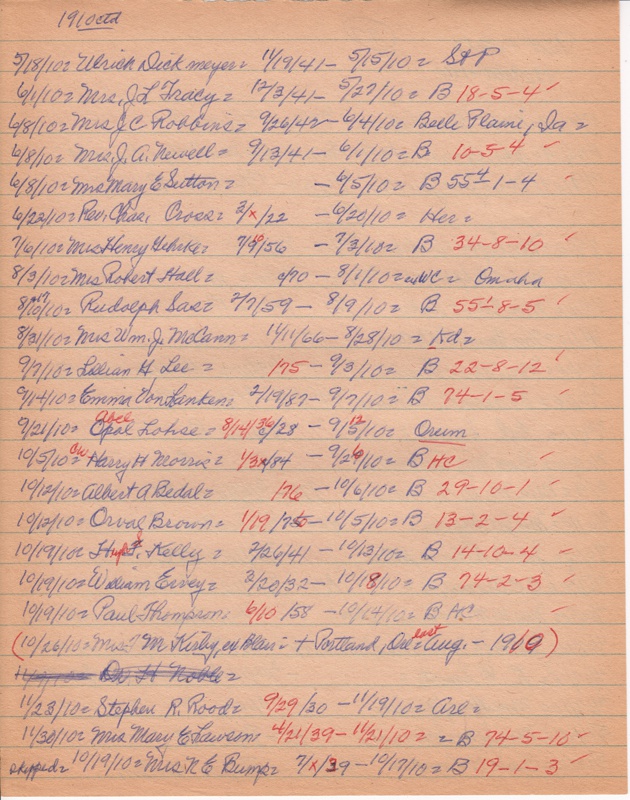 1910 ctd
5/18/10 = Ulrich Dickmeyer = 11/19/41 - 5/15/10 = St P
6/1/10 = Mrs. J L Tracy = 12/3/41 - 5/27/10 = B 18-5-4 ✓
6/8/10 = Mrs J C Robbins = 9/26/42 - 6/4/10 = Belle Plaine, Ia =
6/8/10 = Mrs. J. A. Newell = 9/13/41 - 6/1/10 = B 10-5-4 ✓
6/8/10 = Mrs Mary E Sutton = - 6/5/10 = B 55 1/2-1-4 ✓
6/22/10 = Rev. Chas. Cross = 3/x/22 - 6/20/10 = Her =
7/6/10 = Mrs Henry Gehrke = 7/9/56 - 7/3/10 = B 34-8-10 ✓
8/3/10 = Mrs Robert Hall = c/70 - 8/1/10 = WC = Omaha
8/10/10 = Rudolph Sas = 2/7/59 - 8/9/10 = B 55 1/2-8-5 ✓
8/31/10 = Mrs Wm. J. McCann = 11/11/66 - 8/28/10 = Kd =
9/7/10 = Lillian H Lee = 175 - 9/3/10 = B 22-8-12 ✓
9/14/10 = Emma Von Lanken = 2/19/87 - 9/7/10 = B 74-1-5 ✓
9/21/10 = Opal Lohse = 8/14/ /28 - 9/12/10 = Orum
10/5/10 = Harry H Morris = 1/3/84 - 9/26/10 = B HC ✓
10/12/10 = Albert A Bedal = 176 - 10/6/10 = B 29-10-1 ✓
10/12/10 = Orval Brown = 1/19/ - 10/5/10 = B 13-2-4 ✓
10/19/10 = Kelly = 2/26/41 - 10/13/10 = B 14-10-4 ✓
10/19/10 = William Ervey = 2/20/32 - 10/18/10 = B 74-2-3 ✓
10/19/10 = Paul Thompson = 6/10/58 - 10/14/10 = B HC ✓
(10/26/10 = Mrs M Kirby, ex Blair = + Portland, Ore = last Aug. - 1910)
Noble =
11/23/10 = Stephen R. Rood = 9/29/30 - 11/19/10 = Arl =
11/30/10 = Mrs Mary E Lawson = 4/21/39 - 11/21/10 = = B 74-5-10 ✓
skipped = 10/19/10 = Mrs N E Bump = 7/x/39 - 10/17/10 = B 19-1-3 ✓